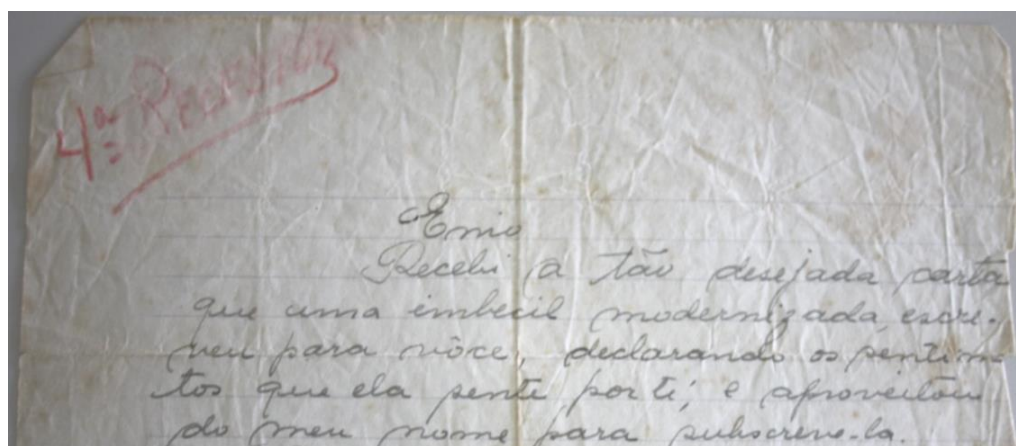 4ª
Enio
Recebi a tão desejada carta
que uma imbecil modernizada, escre-
veu para vôce, declarando os sentim
tos que ela sente por ti, e aproveitou
do meu nome para subscreve-la.